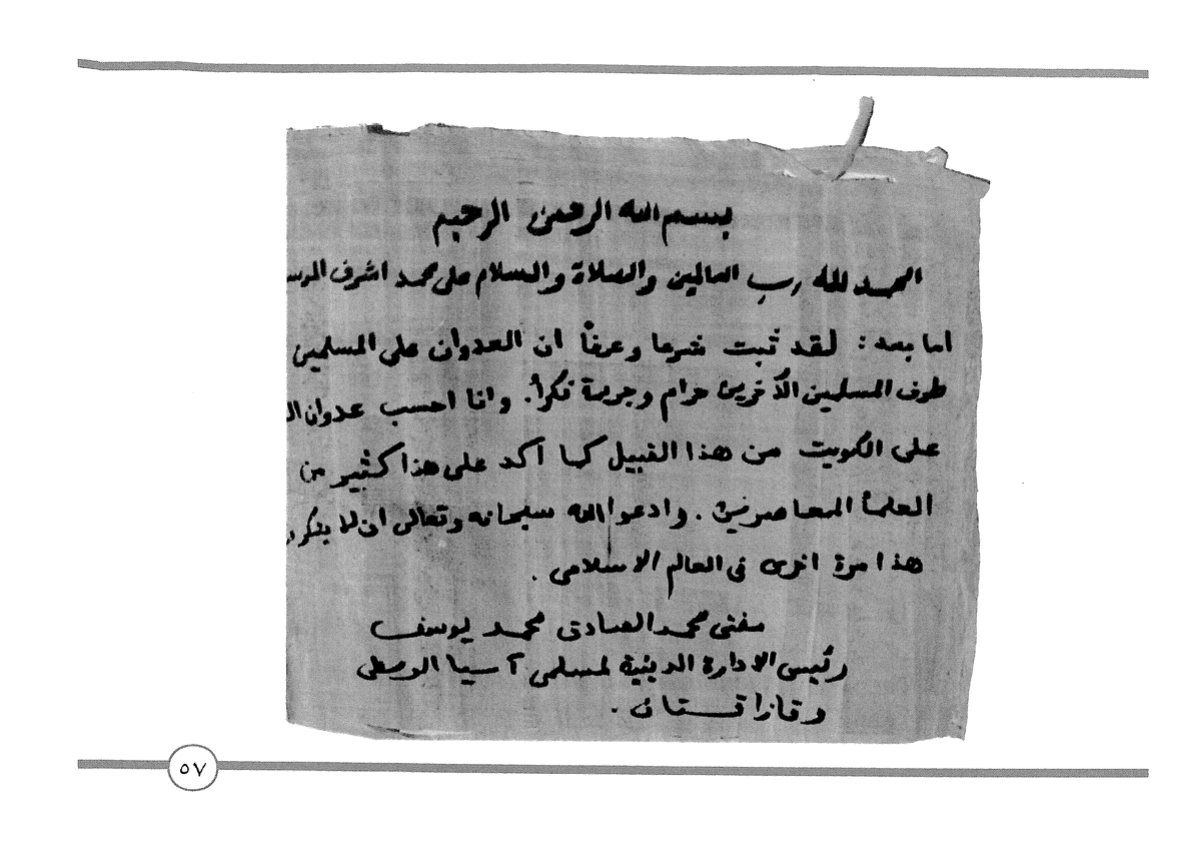 بسم الله الرحمن الرحيم
الحمد لله رب العالمين والصلاة والسلام على محمد اشرف المرس
اما بعد: لقد ثبت شرعا وعرفاً ان العدوان على المسلمين
طرف المسلمين الآخرين حرام وجريمة نكرأ. وانا احسب عدوان ال
على الكويت من هذا القبيل كما أكد على هذا كثير من
العلمأ المعاصرين. وادعوا الله سبحانه وتعالى ان لا يتكرر
هذا مرة اخرى فى العالم الاسلامى.
مفتى محمد الصادق محمد يوسف
رئيس الادارة الدينية لمسلمى آسيا الوسطى
وقازاقستان.
٥٧